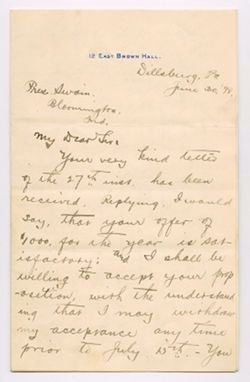 12 EAST BROWN HALL.
Dillsburg, Pa
June 30, '98.
Pres Swain,
Bloomington,
Ind.
My Dear Sir:
Your very kind letter
of the 27th inst. has been
received. Replying, I would
say, that your offer of
$1000. for the year is sat-
isfactory; and I shall be
willing to accept your prop
osition, with the understand
ing that I may withdraw
my acceptance any time
prior to July 15th. - You